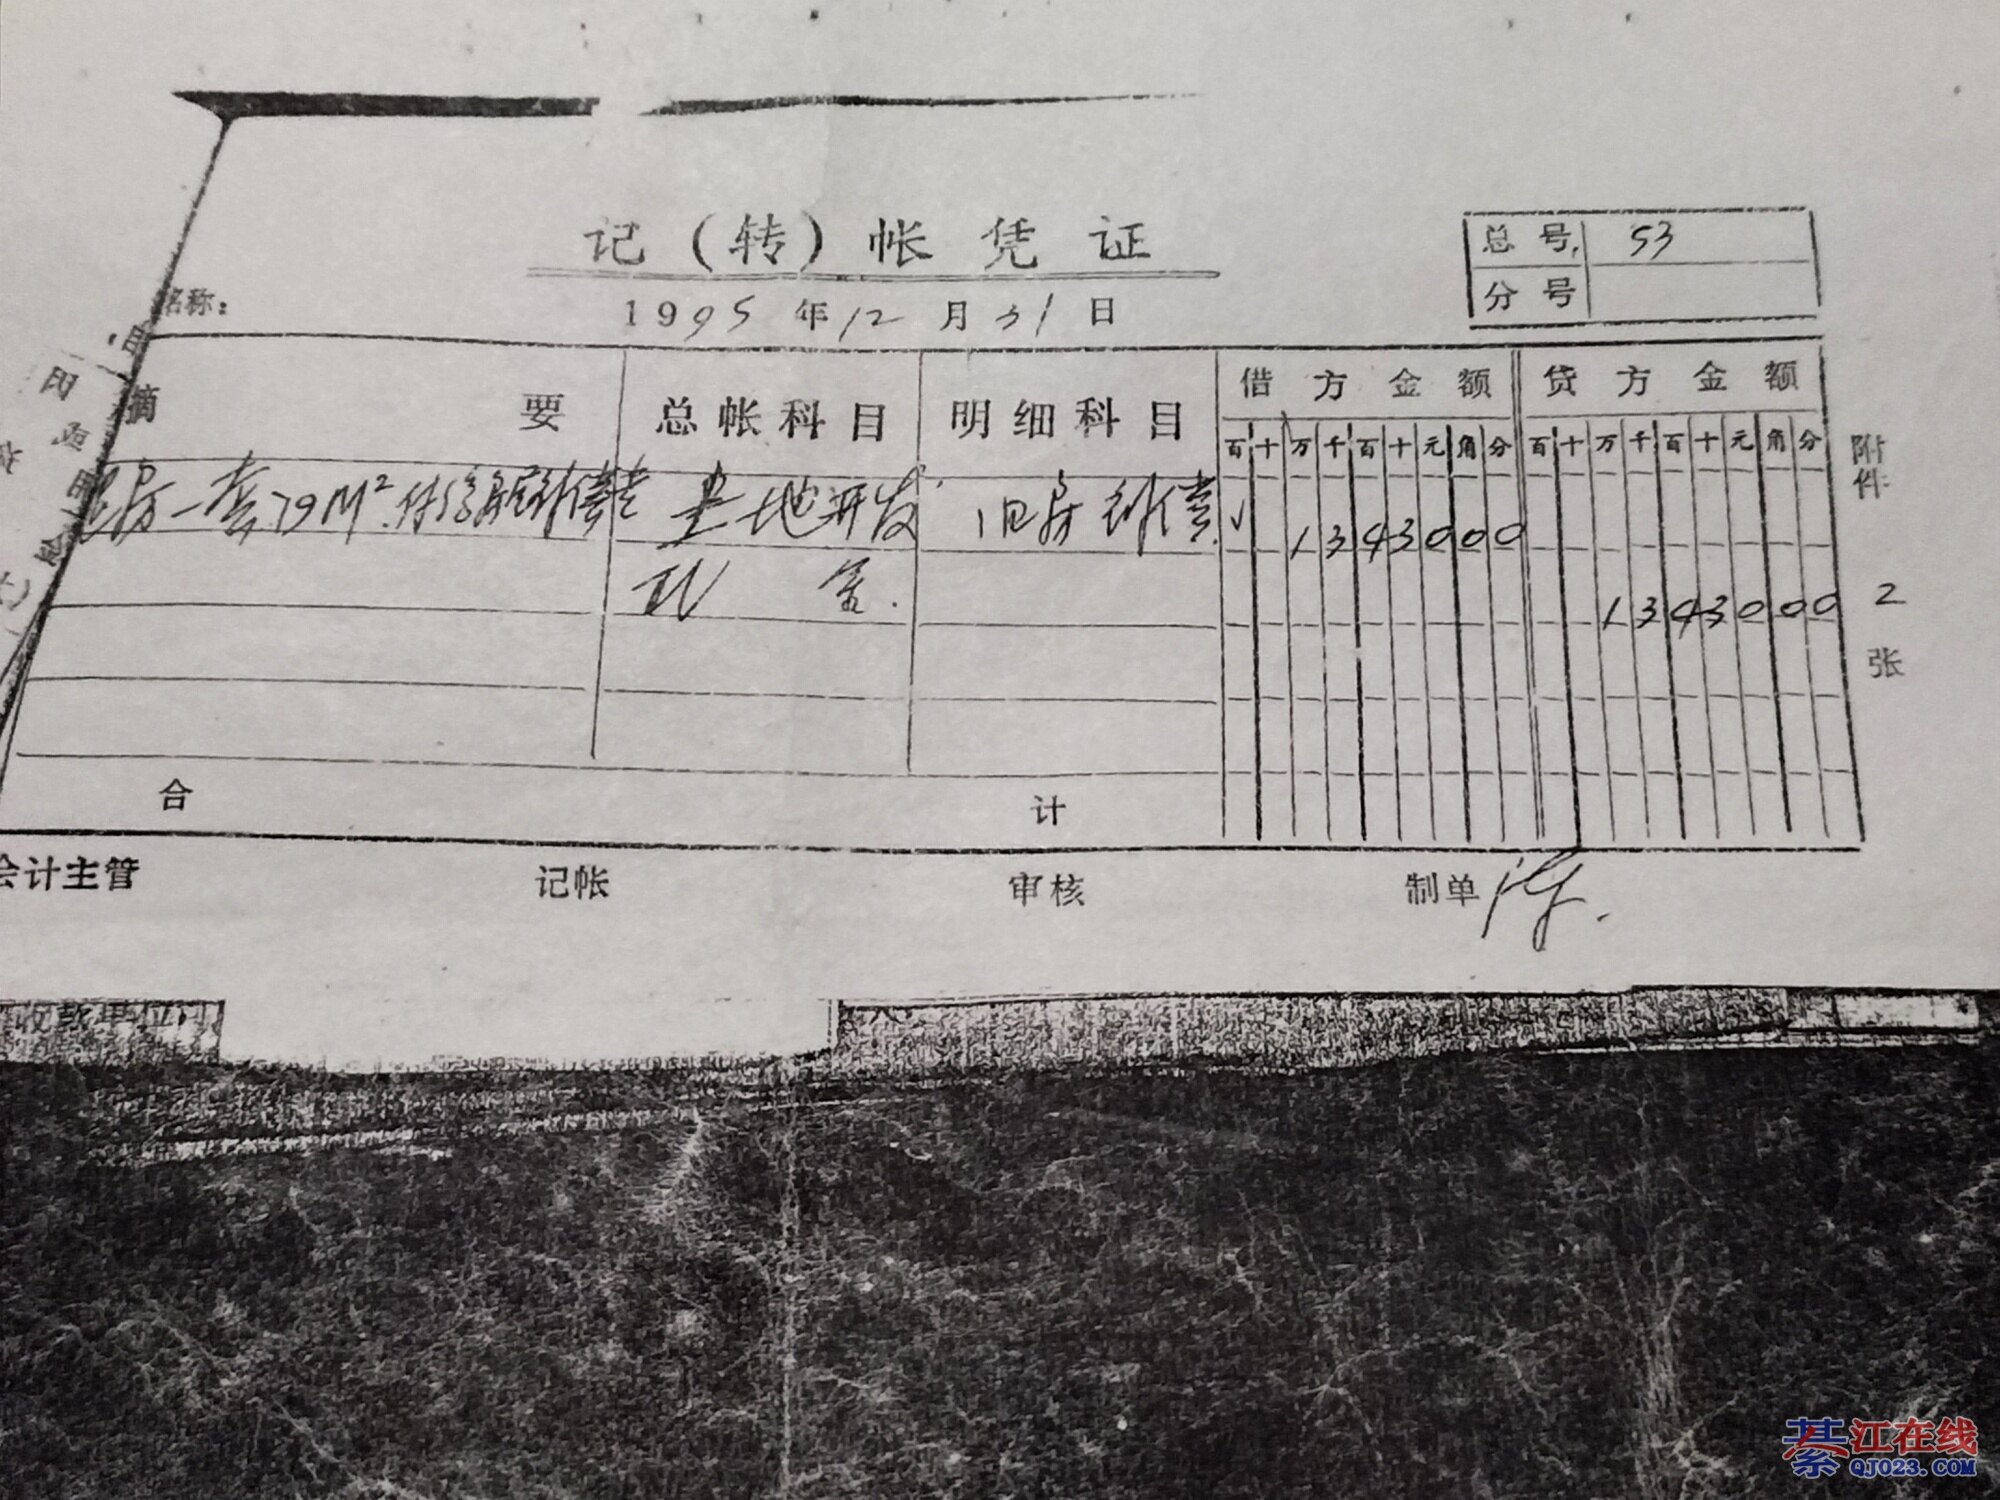 记（转）帐凭证
总号 53
分号
名称：
1995年12月31日
摘要 总帐科目 明细科目 借方金额 贷方金额
百十万千百十元角分 百十万千百十元角分
附件 2 张
房一套79M² 补偿 土地开发 旧房补偿 √ 1343000
1343000
合计
会计主管 记帐 审核 制单
收款单位
綦江在线
QJ023.COM